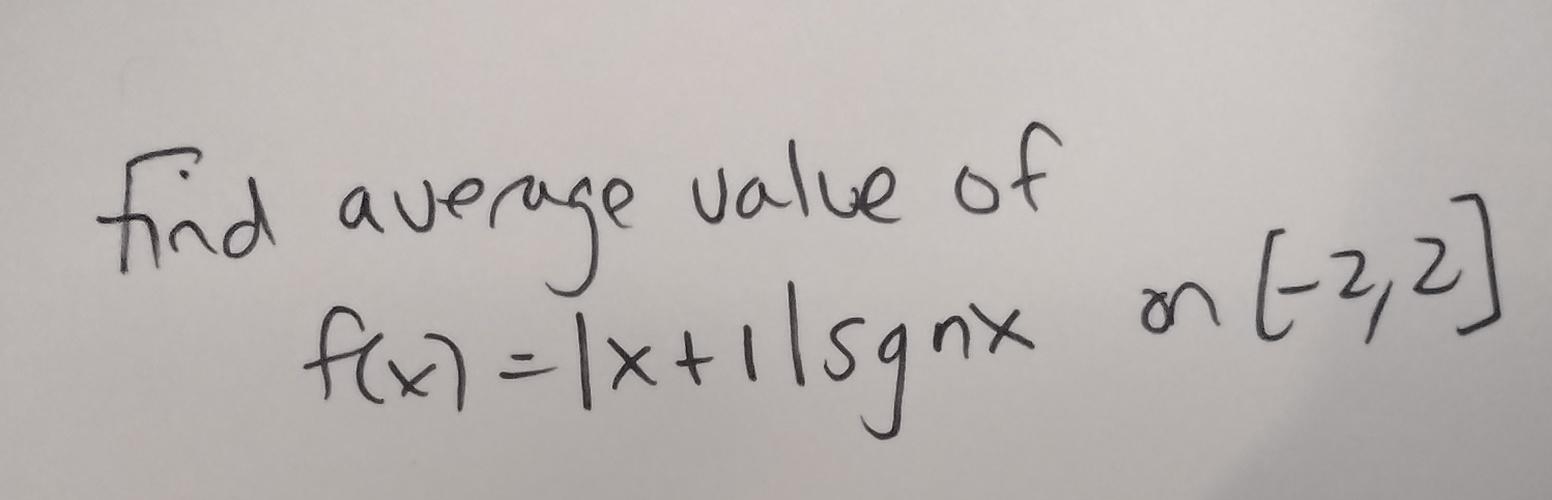 find average value of
f(x) = |x+1|sgnx on [-2,2]